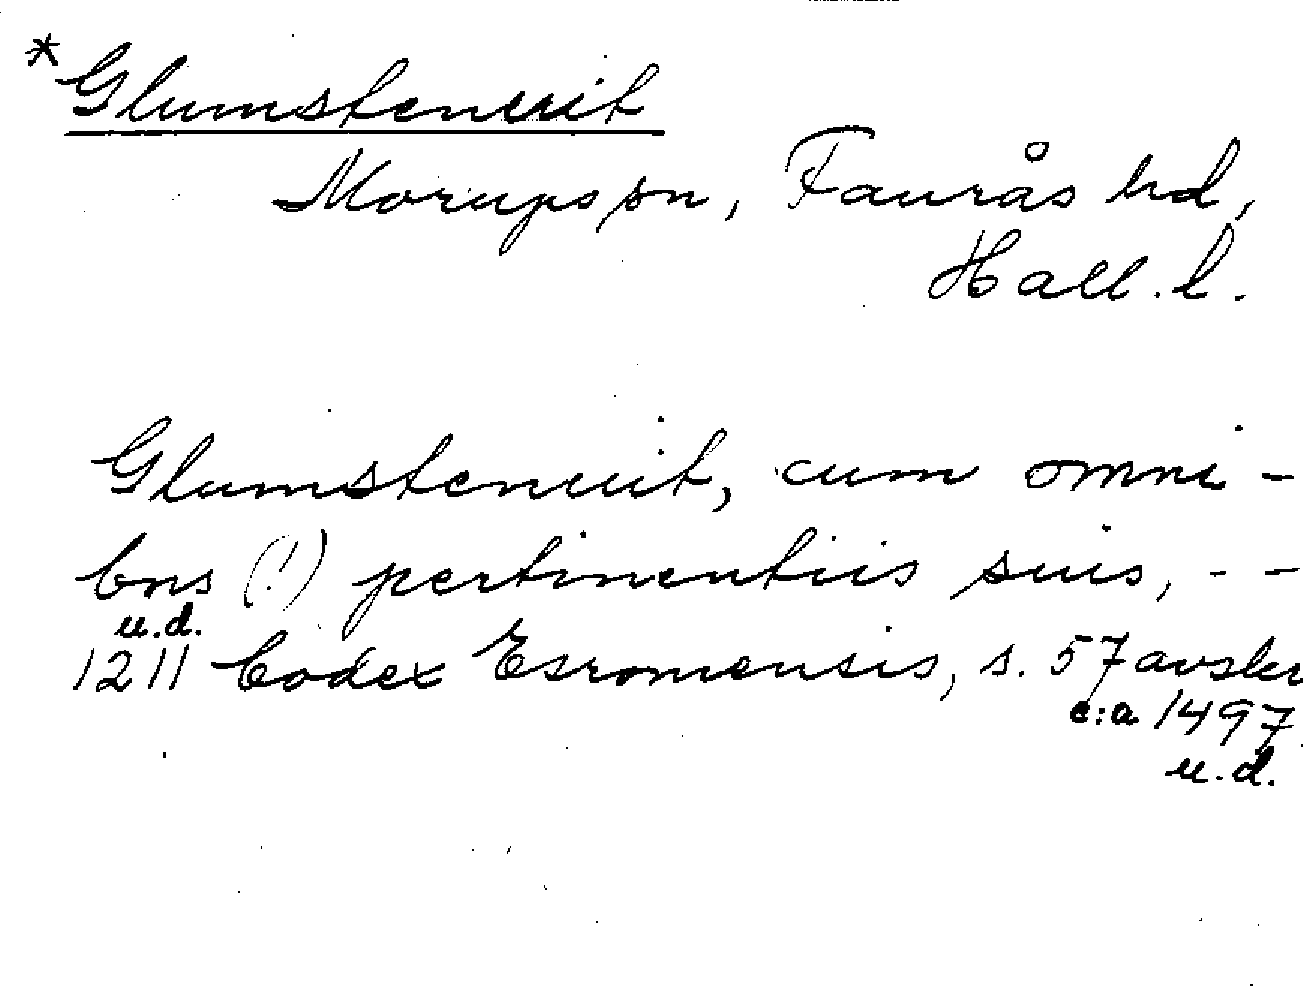 *Glumstenuit
Morups sn, Faurås hd,
Hall. l.
Glumstenuit, cum omni-
bns (!) pertinentiis suis, - -
u.d.
1211 Codex Esromensis, s. 57 avskr
c:a 1497
u.d.